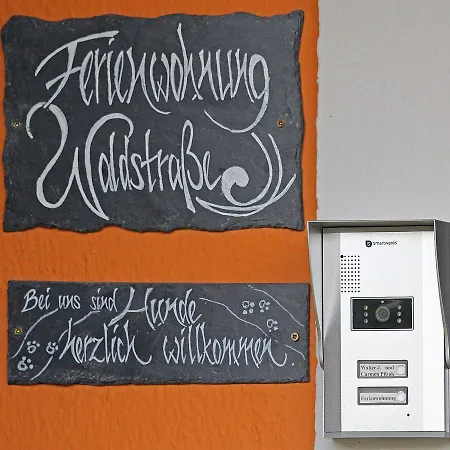 Ferienwohnung
Waldstraße
Bei uns sind Hunde
herzlich willkommen
smartwares
Walter J. und
Carmen Pibak
Ferienwohnung